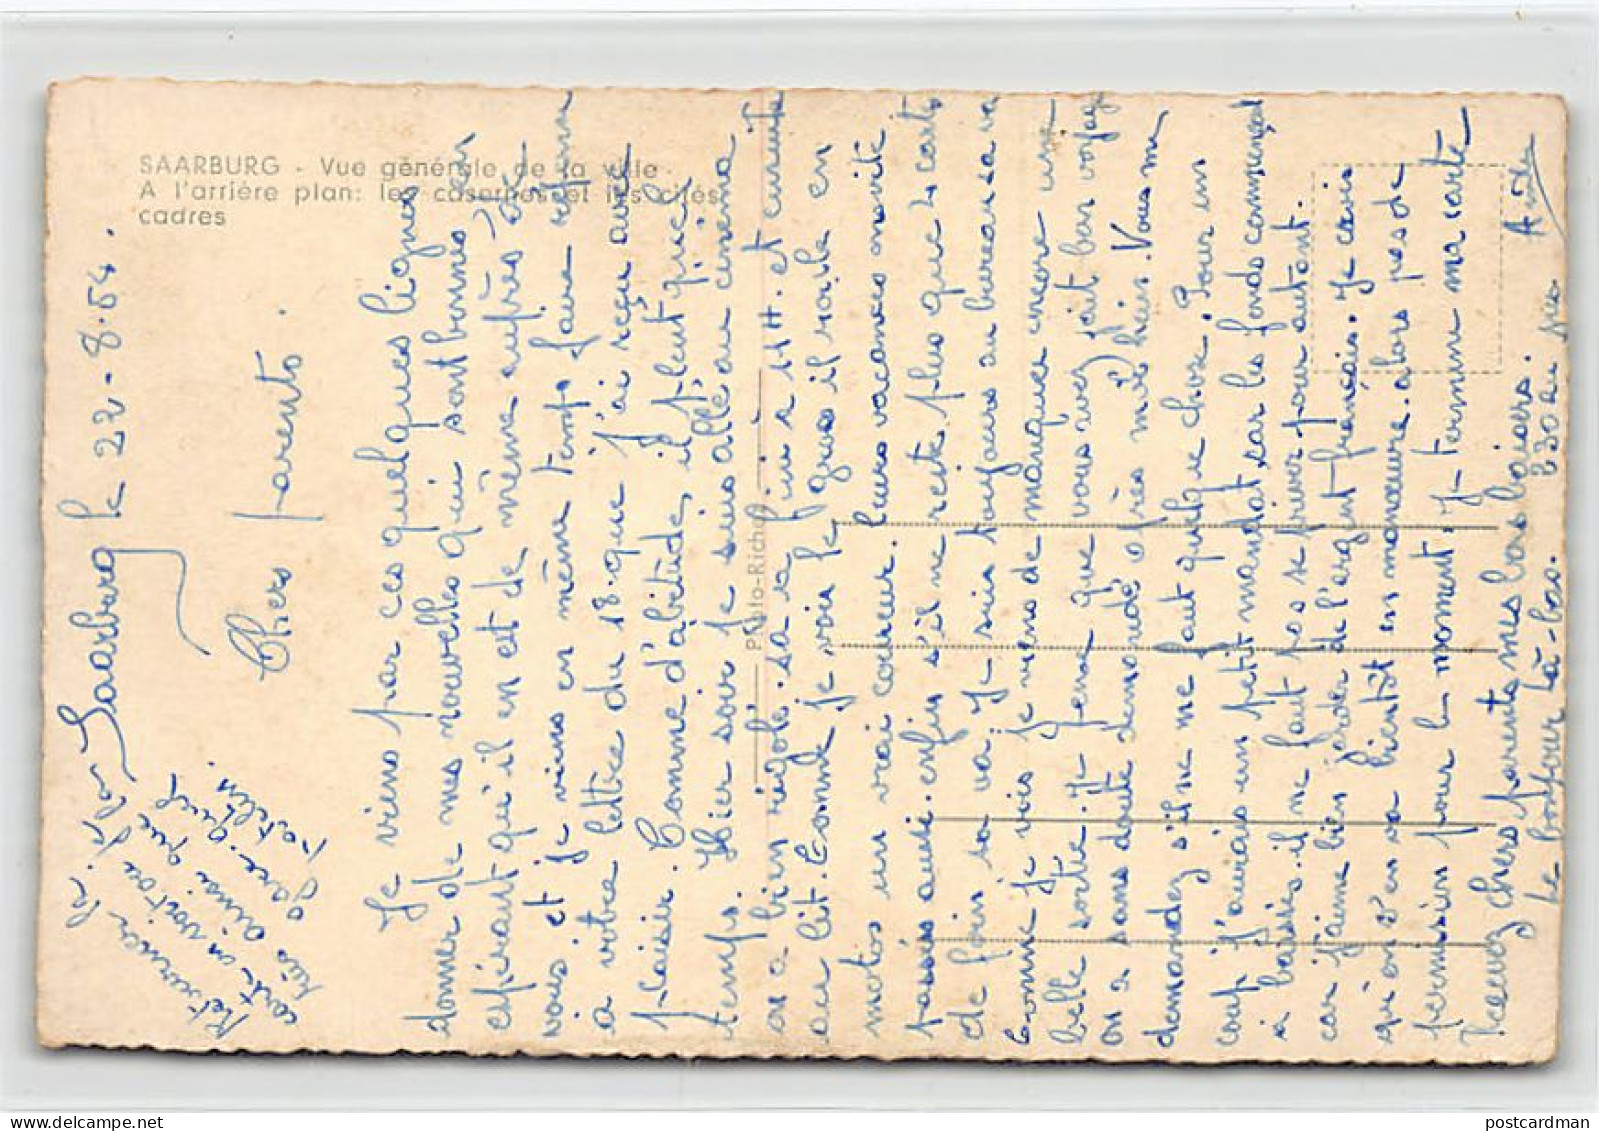 SAARBURG - Vue générale de la ville
A l'arrière plan: les casernes et les cités
cadres
Photo-Richard
Saarburg le 22-8.54.
Chers parents.
Je viens par ces quelques lignes
donner de mes nouvelles qui sont bonnes en
espérant qu'il en et de même auprès de
vous. et je viens en même temps faire réponse
a votre lettre du 18. que j'ai reçu avec
plaisir. Comme d'abitude, il pleut que
temps. Hier soir je suis allé au cinema
on a bien rigolé. sa a fini a 11H. et ensuite
au lit. Léonde je vois le gros il roule en
motos un vrai coureur. leurs vacances on vite
passés aussi. enfin s'il ne reste plus que 4 carts
de foin sa va. Je suis toujours au bureau sa va
bonne je vois je viens de manquer encore une
belle sortie. Je pense que vous avez fait bon voyage
on a sans doute demandé après moi) hein. Vous me
demandez s'il ne me faut quelque chose. Pour un
coup j'aurais un petit mandat, car les fonds commençent
a baisser. il ne faut pas se priver pour autant.
car j'aime bien garder de l'argent français. Je crois
qu'on s'en va bientôt en manœuvre. alors pas de
permission pour le moment. Je termine ma carte
Recevez chers parents mes bons baisers.
Le bonjour là-bas.
carte on voit au
très ainsi que